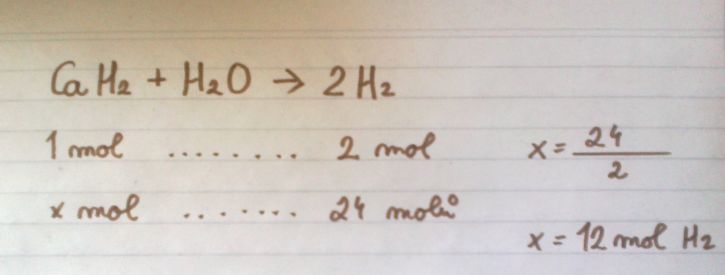 CaH₂ + H₂O → 2 H₂
1 mol ........ 2 mol x = 24/2
x mol ....... 24 molů
x = 12 mol H₂